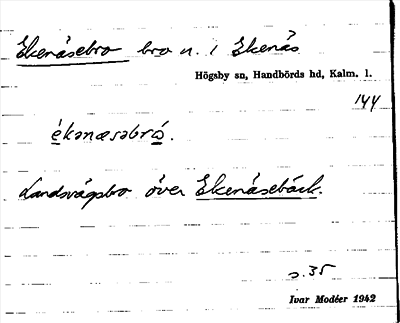 Ekenäsebro bro n. i Ekenäs
Högsby sn, Handbörds hd, Kalm. l.
144
ékənæsəbró.
Landsvägsbro över Ekenäsebäck.
s. 35
Ivar Modéer 1942